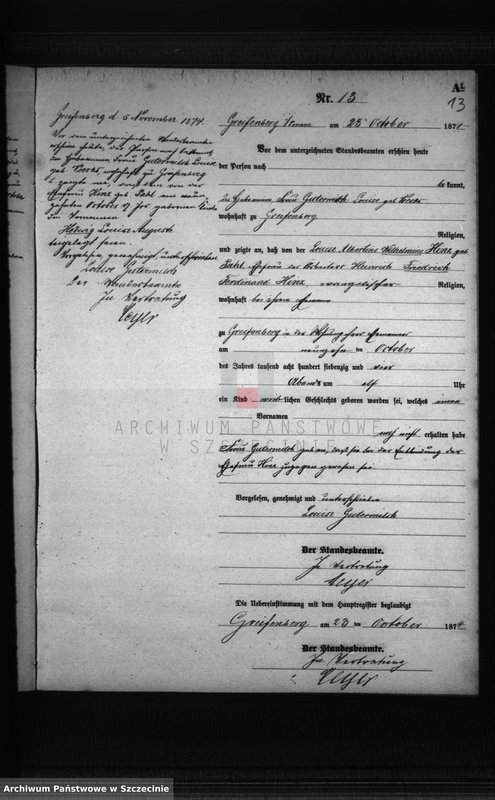 A1
13
Nr. 13
Greifenberg i/Pomm am 23 October 1874.
Vor dem unterzeichneten Standesbeamten erschien heute
der Person nach
be kannt,
die Hebamme, Frau Gutermilch Louise geb.
wohnhaft zu Greifenberg
Religion,
und zeigte an, daß von der Louise Albertine Wilhelmine Henz geb.
Ehefrau des Arbeiters Heinrich Friedrich
Ferdinand Henz, evangelischer Religion,
wohnhaft bei ihrem Ehemanne
zu Greifenberg in der Wohnung ihres Ehemannes
am neunzehn ten October
des Jahres tausend acht hundert siebenzig und vier
Abends um elf Uhr
ein Kind weib lichen Geschlechts geboren worden sei, welches einen
Vornamen
noch nicht erhalten habe
Frau Gutermilch gab an, daß sie bei der Entbindung der
Ehefrau Henz zugegen gewesen sei
Vorgelesen, genehmigt und unterschrieben
Louise Gutermilch
Der Standesbeamte.
In Vertretung
Die Uebereinstimmung mit dem Hauptregister beglaubigt
Greifenberg am 23 ten October 1874
Der Standesbeamte.
In Vertretung
Greifenberg d. 5 November 1874.
Vor dem unterzeichneten Standesbeamten
erschien heute, der Person nach bekannt,
die Hebamme, Frau Gutermilch Louise
wohnhaft zu Greifenberg
und zeigte an, daß von der
Ehefrau Henz geb.
October d. Jrs geborenen Kinde
die Vornamen
Hedwig Louise Auguste
beigelegt seien.
Vorgelesen genehmigt unterschrieben
Louise Gutermilch
Der Standesbeamte
In Vertretung
ARCHIWUM PAŃSTWOWE
W SZCZECINIE
Archiwum Państwowe w Szczecinie